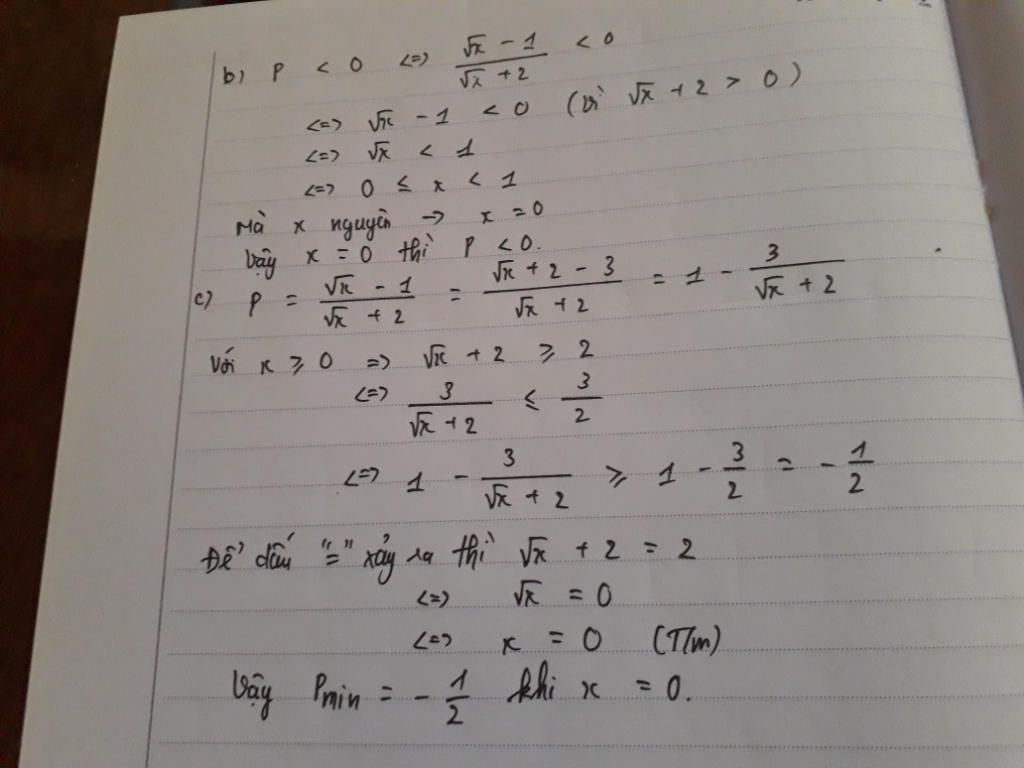 b) P < 0 <=> (√x - 1)/(√x + 2) < 0
<=> √x - 1 < 0 (vì √x + 2 > 0)
<=> √x < 1
<=> 0 ≤ x < 1
Mà x nguyên → x = 0
Vậy x = 0 thì P < 0.
c) P = (√x - 1)/(√x + 2) = (√x + 2 - 3)/(√x + 2) = 1 - 3/(√x + 2)
Với x ≥ 0 => √x + 2 ≥ 2
<=> 3/(√x + 2) ≤ 3/2
<=> 1 - 3/(√x + 2) ≥ 1 - 3/2 = - 1/2
Để dấu "=" xảy ra thì √x + 2 = 2
<=> √x = 0
<=> x = 0 (T/m)
Vậy Pmin = - 1/2 khi x = 0.